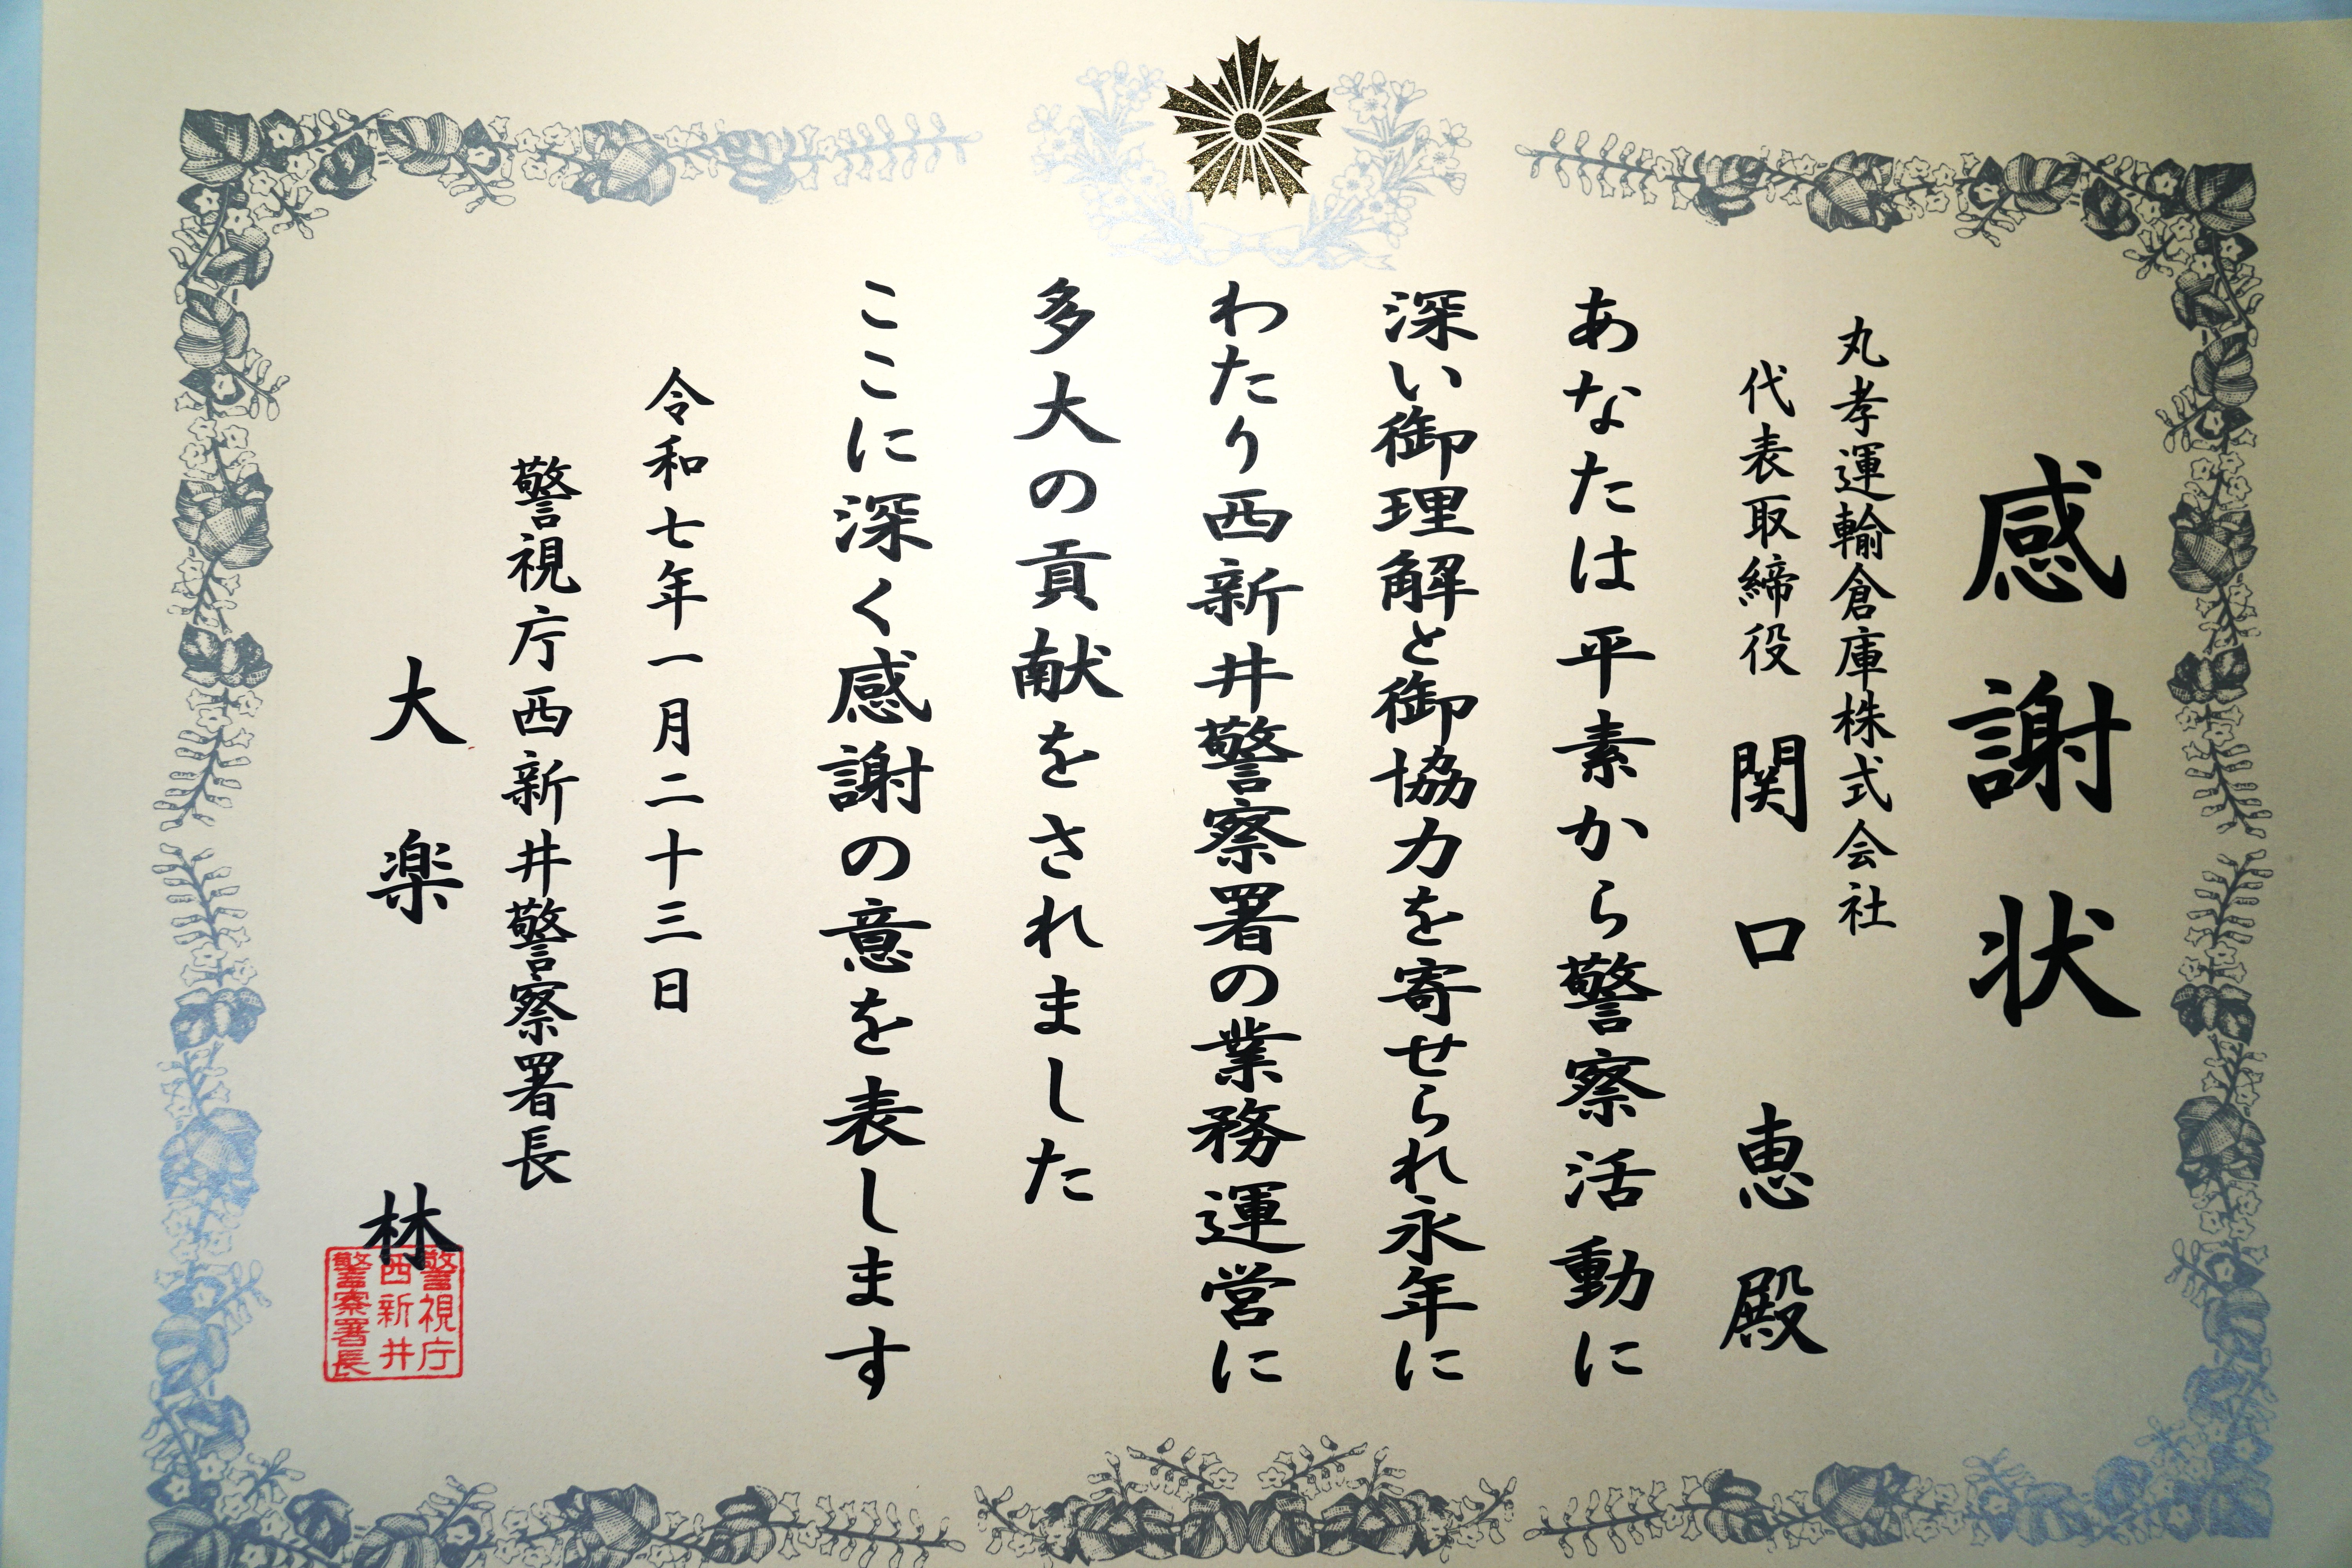 感謝状
丸孝運輸倉庫株式会社
代表取締役 関口恵殿
あなたは平素から警察活動に
深い御理解と御協力を寄せられ永年に
わたり西新井警察署の業務運営に
多大の貢献をされました
ここに深く感謝の意を表します
令和七年一月二十三日
警視庁西新井警察署長
大楽 林
警視庁
西新井
警察署長